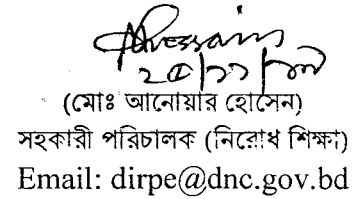 (মোঃ আনোয়ার হোসেন)
সহকারী পরিচালক (নিরোধ শিক্ষা)
Email: dirpe@dnc.gov.bd